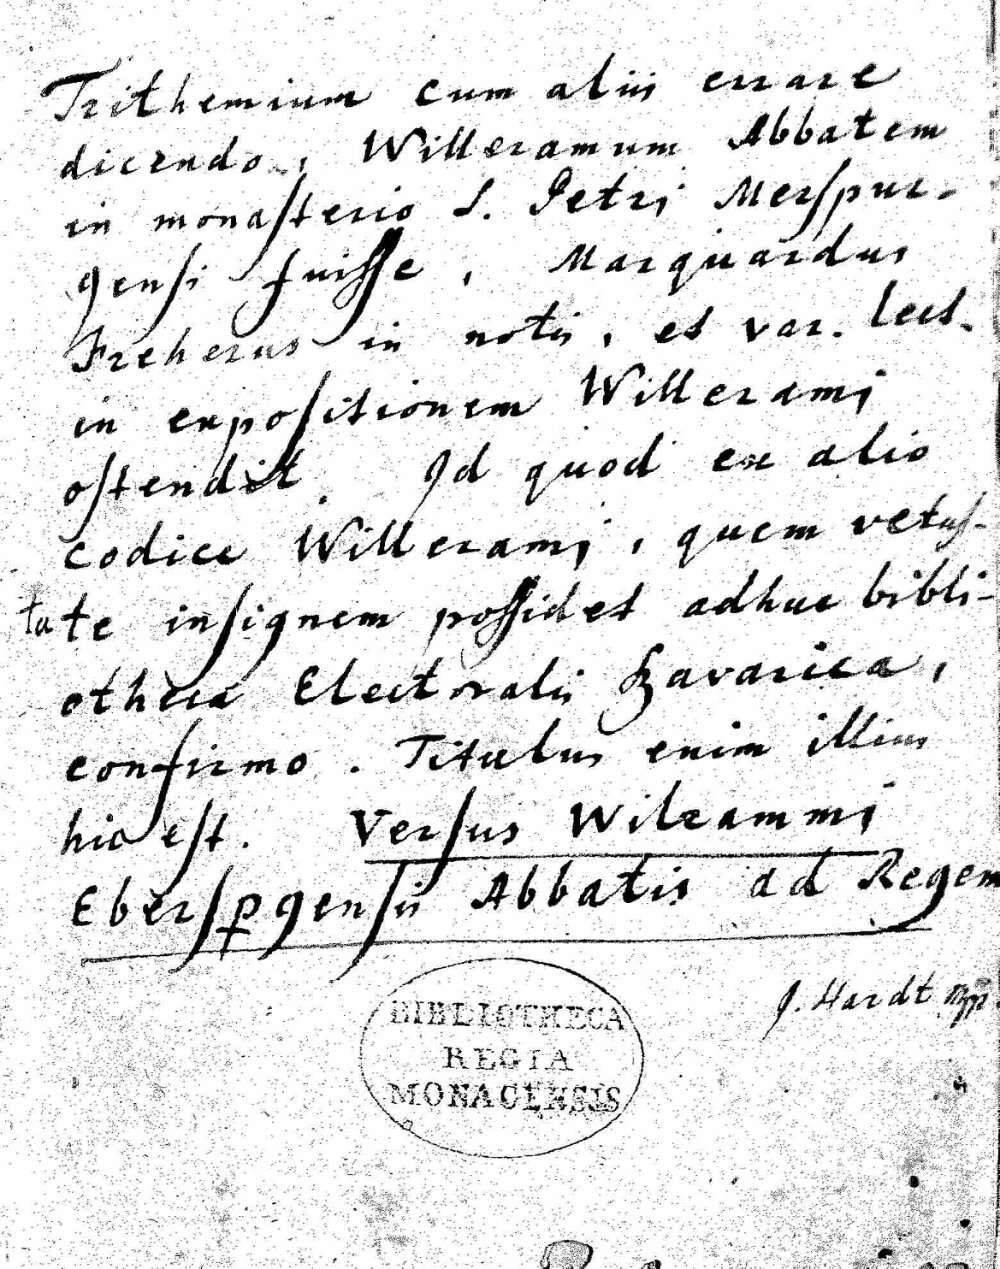 Trithemium cum aliis errare
dicendo, Willeramum Abbatem
in monaſterio S. Petri Merſpur-
genſi fuiſſe, Marquardus
Freherus in notis, et var. lect.
in expoſitionem Willerami
oſtendit. Id quod ex alio
codice Willerami, quem vetuſ-
tate inſignem poſſidet adhuc bibli-
otheca Electoralis Bavarica,
confirmo. Titulus enim illius
hic eſt. Verſus Wilrammi
Eberſꝑgenſis Abbatis ad Regem
J. Hardt
BIBLIOTHECA
REGIA
MONACENSIS